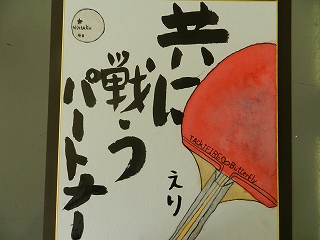 共に
戦う
パートナー
えり
Butterfly